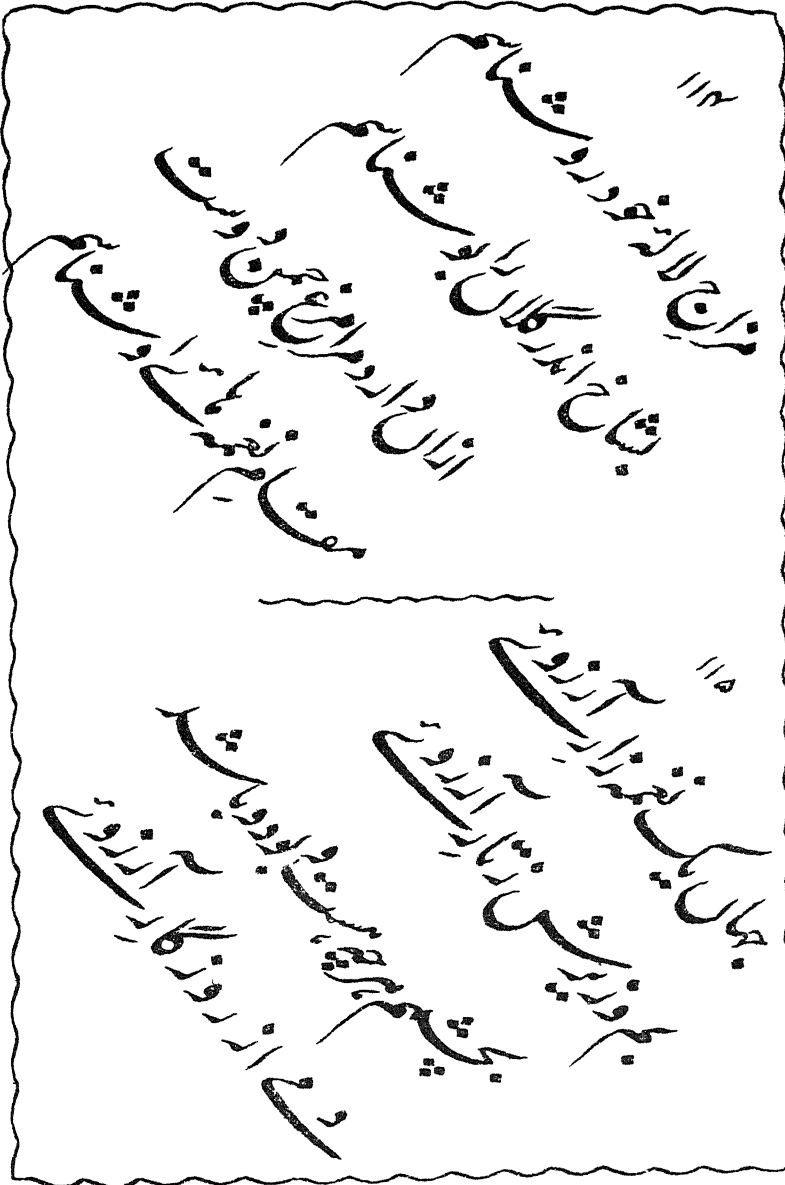 ۱۱۴
مزاج لالۂ خود رو شناسم
بشاخ اندر گلاں را بو شناسم
ازاں دارد مرا مرغ چمن دوست
مقامِ نغمہ ہائے او شناسم
۱۱۵
جہاں یک نغمہ زارِ آرزوئے
بم و زیرش ز تارِ آرزوئے
بچشمم ہرچہ ہست و بود و باشد
دمے از روزگارِ آرزوئے